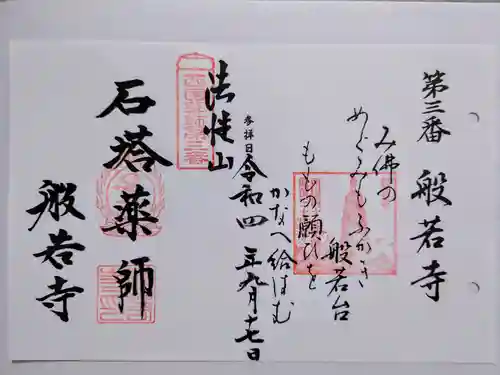 第三番 般若寺
み佛の
めぐみもふかき
般若台
ももの願ひを
かなへ給はむ
参拝日 令和四年九月十七日
法性山
石塔薬師
般若寺